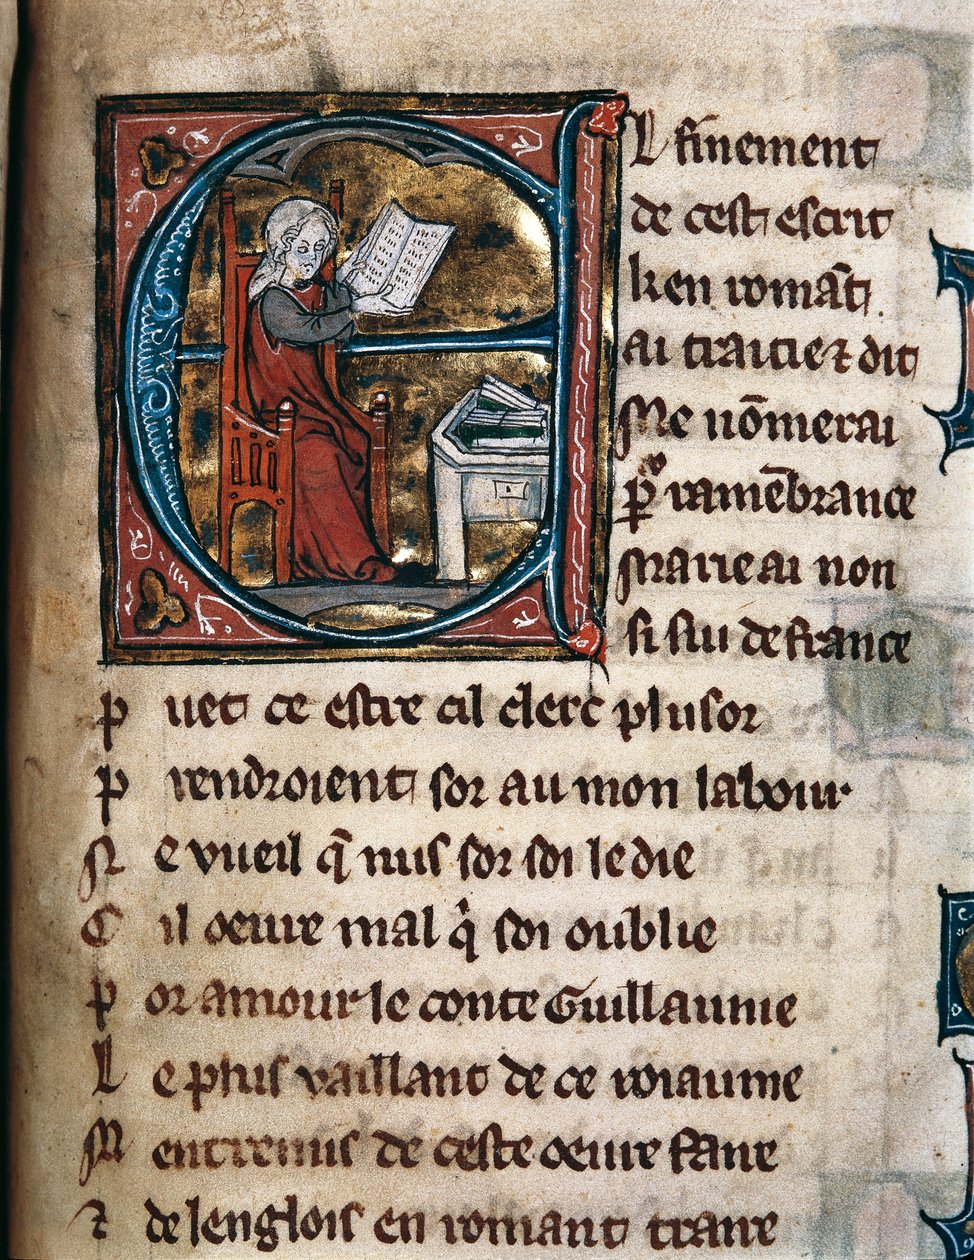 El finement
de cest escrit
k en romāt
ai traitie ⁊ dit
Me nōmerai
ꝑ ramēbrance
Marie ai non
si sui de france
Puet ce estre cil clerc plusor
Prendroient sor au mon labour
Ne vueil q̄ nus sor soi le die
Cil oeure mal qͥ soi oublie
Por amour le conte Guillaume
Le plus vaillant de ce roiaume
Mentremis de ceste oeure faire
⁊ de lenglois en romant traire